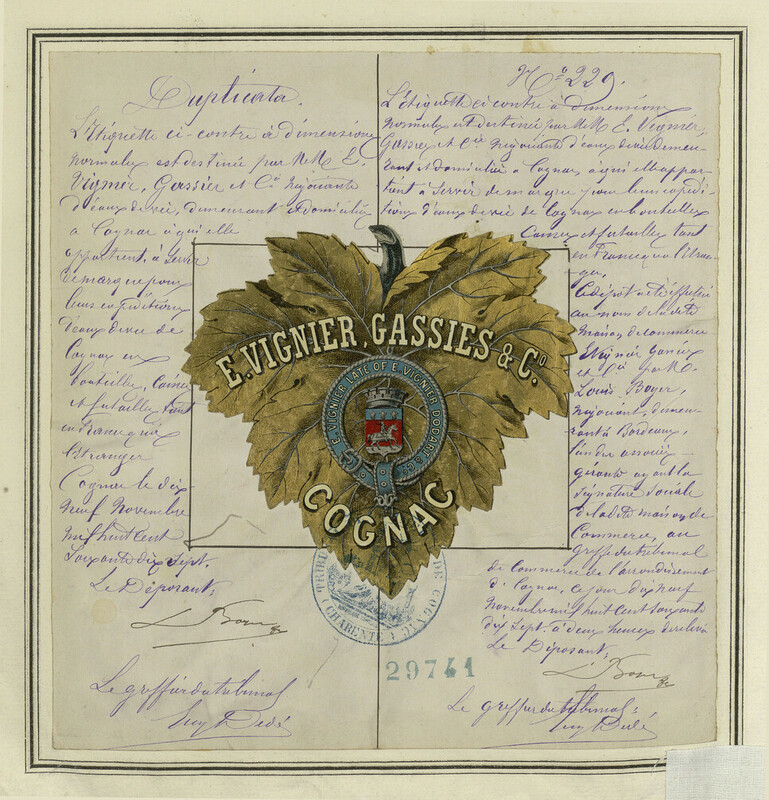 Duplicata.
L'Etiquette ci-contre à dimensions
normales est destinée par MM. E.
Vignier, Gassies et Cie négociants
d'eaux de vie, demeurant et domiciliés
a Cognac à qui elle
appartient, à servir
de marque pour
leurs expéditions
d'eaux de vie de
Cognac en
bouteilles, Caisses
et futailles tant
en France qu'à
l'Etranger
Cognac le dix
neuf Novembre
mil huit cent
soixante dix sept.
Le Déposant:
L. Boyer
Le greffier du tribunal
No 229.
L'étiquette ci contre à dimensions
normales est destinée par MM. E. Vignier,
Gassies et Cie négociants d'eaux de vie demeu-
rant et domiciliés a Cognac, a qui elle appar-
tient à servir de marque pour leurs expédi-
tions d'eaux de vie de Cognac en bouteilles
Caisses et futailles tant
en France qu'à l'étran-
ger.
Ce dépot a été effectué
au nom de la dite
maison de commerce
Vignier Gassies
et Cie par M.
Louis Boyer,
négociant, demeu-
rant à Bordeaux,
l'un des associés
gérants ayant la
signature sociale
de la dite maison de
Commerce, au
greffe du tribunal
de Commerce de l'arrondissement
de Cognac, ce jour dix neuf
Novembre mil huit cent soixante
dix sept à deux heures de relevée
Le Déposant:
L. Boyer
Le greffier du tribunal:
E. VIGNIER, GASSIES & Co.
E. VIGNIER LATE OF E. VIGNIER DODART & Co
COGNAC
TRIBUNAL DE COMMERCE DE COGNAC
(CHARENTE)
29741